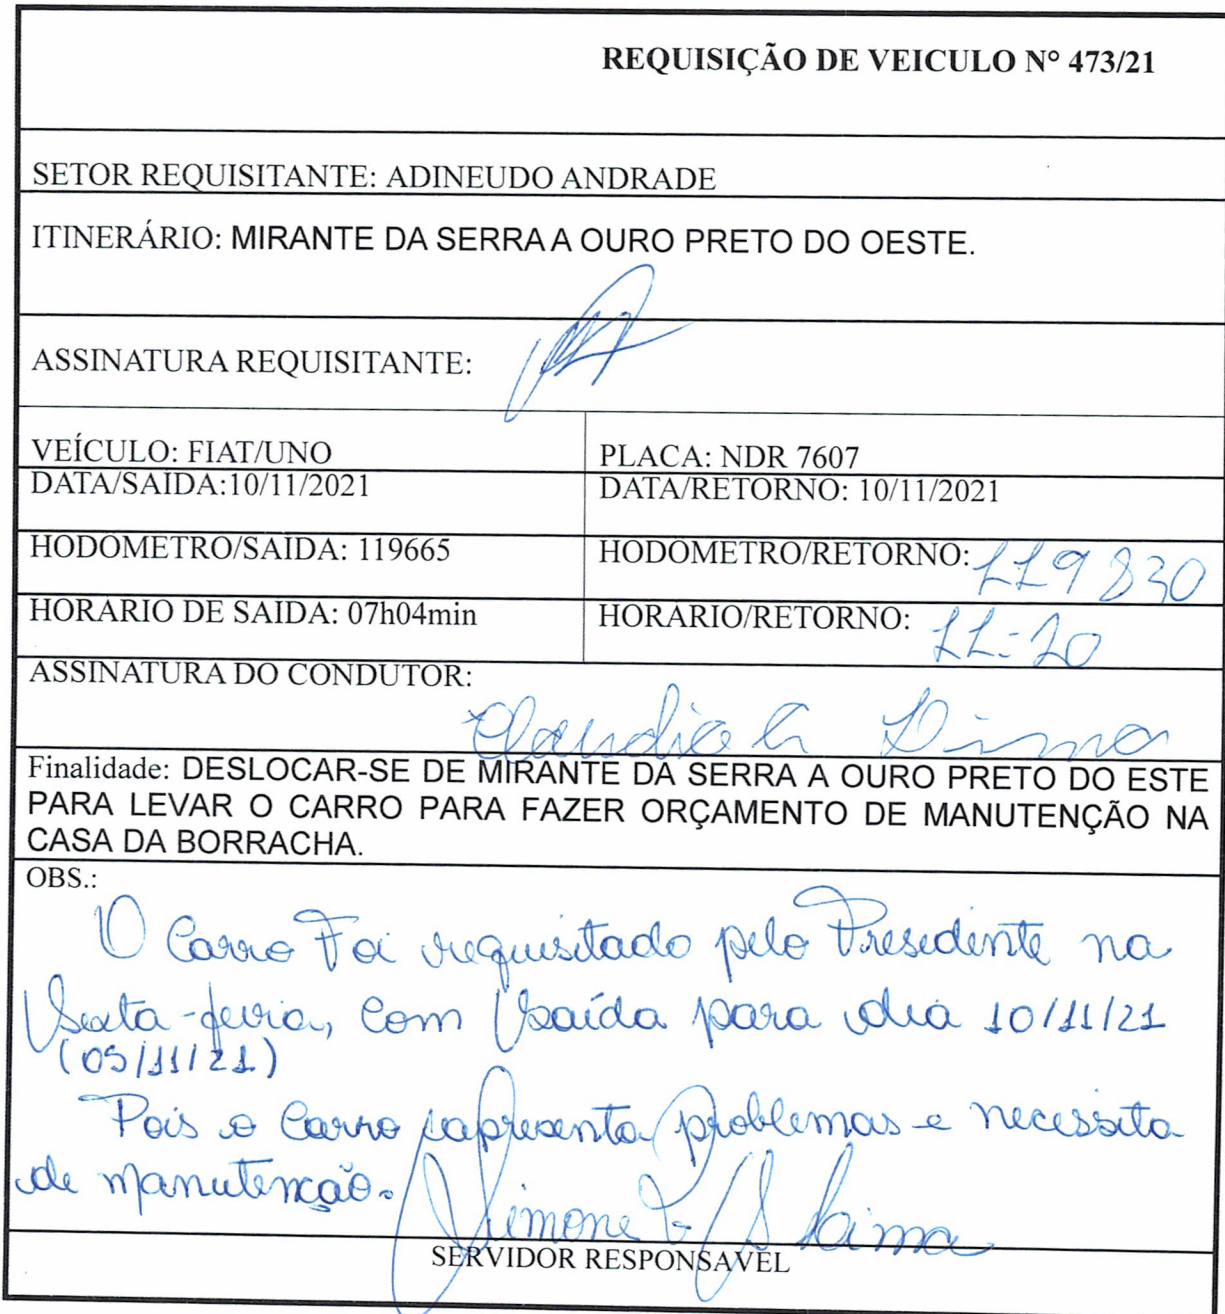 REQUISIÇÃO DE VEICULO N° 473/21
SETOR REQUISITANTE: ADINEUDO ANDRADE
ITINERÁRIO: MIRANTE DA SERRA A OURO PRETO DO OESTE.
ASSINATURA REQUISITANTE:
VEÍCULO: FIAT/UNO
PLACA: NDR 7607
DATA/SAIDA:10/11/2021
DATA/RETORNO: 10/11/2021
HODOMETRO/SAIDA: 119665
HODOMETRO/RETORNO: 119830
HORARIO DE SAIDA: 07h04min
HORARIO/RETORNO: 11:20
ASSINATURA DO CONDUTOR:
Finalidade: DESLOCAR-SE DE MIRANTE DA SERRA A OURO PRETO DO ESTE
PARA LEVAR O CARRO PARA FAZER ORÇAMENTO DE MANUTENÇÃO NA
CASA DA BORRACHA.
OBS.:
O Carro Foi requisitado pelo Presidente na
Sexta-feira, com saída para dia 10/11/21
(05/11/21)
Pois o Carro apresenta problemas e necessita
de manutenção.
Simone Lima
SERVIDOR RESPONSAVEL